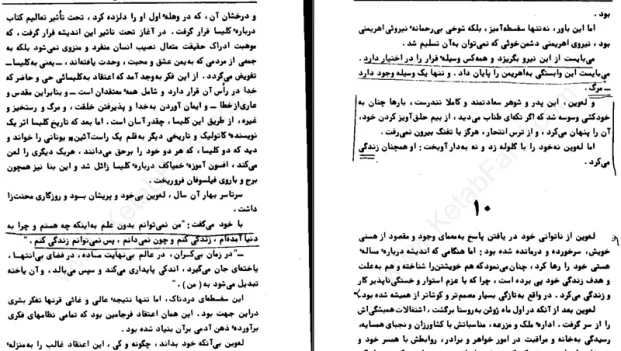 بود .
اما این باور، نه‌تنها سفسطه‌آمیز، بلکه شوخی بی‌رحمانهٔ نیروئی اهریمنی
بود ، نیروی اهریمنی دشمن‌خوئی که نمی‌توان به‌آن تسلیم شد .
می‌بایست از این نیرو بگریزد و همه‌کس وسیلهٔ فرار را در اختیار دارد .
می‌بایست این وابستگی به‌اهریمن را پایان داد. و تنها یک وسیله وجود دارد
– مرگ .
و لوین، این پدر و شوهر سعادتمند و کاملا تندرست، بارها چنان به
خودکشی وسوسه شد که اگر تکه‌ای طناب می‌دید ، از بیم حلق‌آویز کردن خود،
آن را پنهان می‌کرد ، و از ترس انتحار، هرگز با تفنگ بیرون نمی‌رفت.
اما لوین نه‌خود را با گلوله زد و نه به‌دار آویخت: او همچنان زندگی
می‌کرد .
۱۰
لوین از ناتوانی خود در یافتن پاسخ به‌معمای وجود و مقصود از هستی
خویش، سرخورده و درمانده شده بود؛ اما هنگامی که اندیشه دربارهٔ مساله
هستی خود را رها کرد، چنان می‌نمود که هم خویشتن را شناخته و هم به‌علت
و هدف زندگی خود پی برده است، چرا که با عزم استوار و خستگی‌ناپذیر کار
و زندگی می‌کرد. در واقع به‌تازگی بسیار مصمم‌تر و کوشاتر از همیشه شده بود.
لوین بعد از آنکه در اول ماه ژوئن به‌روستا برگشت، اشتغالات همیشگی‌اش
را از سر گرفت . ادارهٔ ملک و مزرعه، مناسباتش با کشاورزان و نجبای همسایه،
رسیدگی به‌خانه و مراقبت در امور خواهر و برادر، روابطش با همسر خود و
و درخشان آن، که در وهلهٔ اول او را دلزده کرد، تحت تأثیر تعالیم کتاب
دربارهٔ کلیسا قرار گرفت. در آغاز تحت تاثیر این اندیشه قرار گرفت، که
موهبت ادراک حقیقت متعال نصیب انسان منفرد و منزوی نمی‌شود بلکه به
جمعی از مردمی که به‌یمن عشق و محبت، وحدت یافته‌اند، – یعنی به‌کلیسا –
تفویض می‌گردد. از این فکر به‌وجد آمد که اعتقاد به‌کلیسائی حی و حاضر که
خدا در رأس آن قرار دارد و شامل همهٔ معتقدان است – و بنابراین مقدس و
عاری‌ازخطا – و ایمان آوردن به‌خدا و پذیرفتن خلقت ، و مرگ ، و رستخیز و
غیره، از طریق این کلیسا ، چقدر آسان است. اما بعد که تاریخ کلیسا اثر یک
نویسندهٔ کاتولیک و تاریخی دیگر به‌قلم یک راست‌آئین یونانی را خواند و
دید که دو کلیسا، که هر دو خود را برحق می‌دانند، هریک دیگری را لعن
می‌کند، افسون آموزهٔ خمیاکف دربارهٔ کلیسا زائل شد و این بنا نیز همچون
برج و باروی فیلسوفان فروریخت.
سرتاسر بهار آن سال، لوین بی‌خود و پریشان بود و روزگاری محنت‌زا
داشت .
با خود می‌گفت: "من نمی‌توانم بدون علم به‌اینکه چه هستم و چرا به
دنیا آمده‌ام، زندگی کنم و چون نمی‌دانم ، پس نمی‌توانم زندگی کنم ."
– "در زمان بی‌کران، در عالم بی‌نهایت ماده، در فضای بی‌انتها،
یاخته‌ای جان می‌گیرد، اندکی پایداری می‌کند و سپس می‌پالد، و آن یاخته
تبدیل می‌شود به (من) ."
این سفسطه‌ای دردناک، اما تنها نتیجهٔ عالی و غائی قرنها تفکر بشری
دراین جهت بود. این همان اعتقاد فرجامین بود که تمامی نظامهای فکری
برآوردهٔ ذهن آدمی برآن بنیاد شده بود.
لوین بی‌آنکه خود بداند، چگونه و کی، این اعتقاد غالب را به‌منزلهٔ